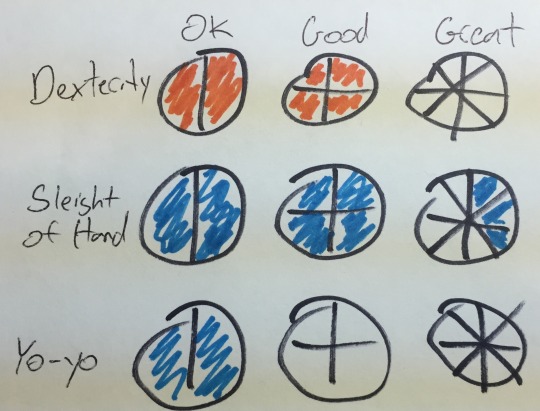 OK Good Great
Dexterity
Sleight
of Hand
Yo-yo